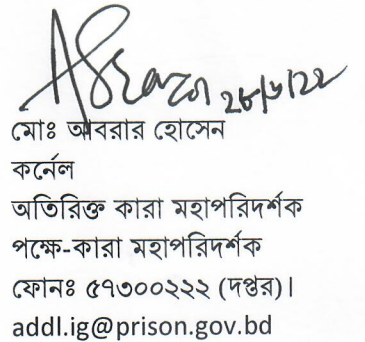 ২৮/৬/২২
মোঃ আবরার হোসেন
কর্নেল
অতিরিক্ত কারা মহাপরিদর্শক
পক্ষে-কারা মহাপরিদর্শক
ফোনঃ ৫৭৩০০২২২ (দপ্তর)।
addl.ig@prison.gov.bd